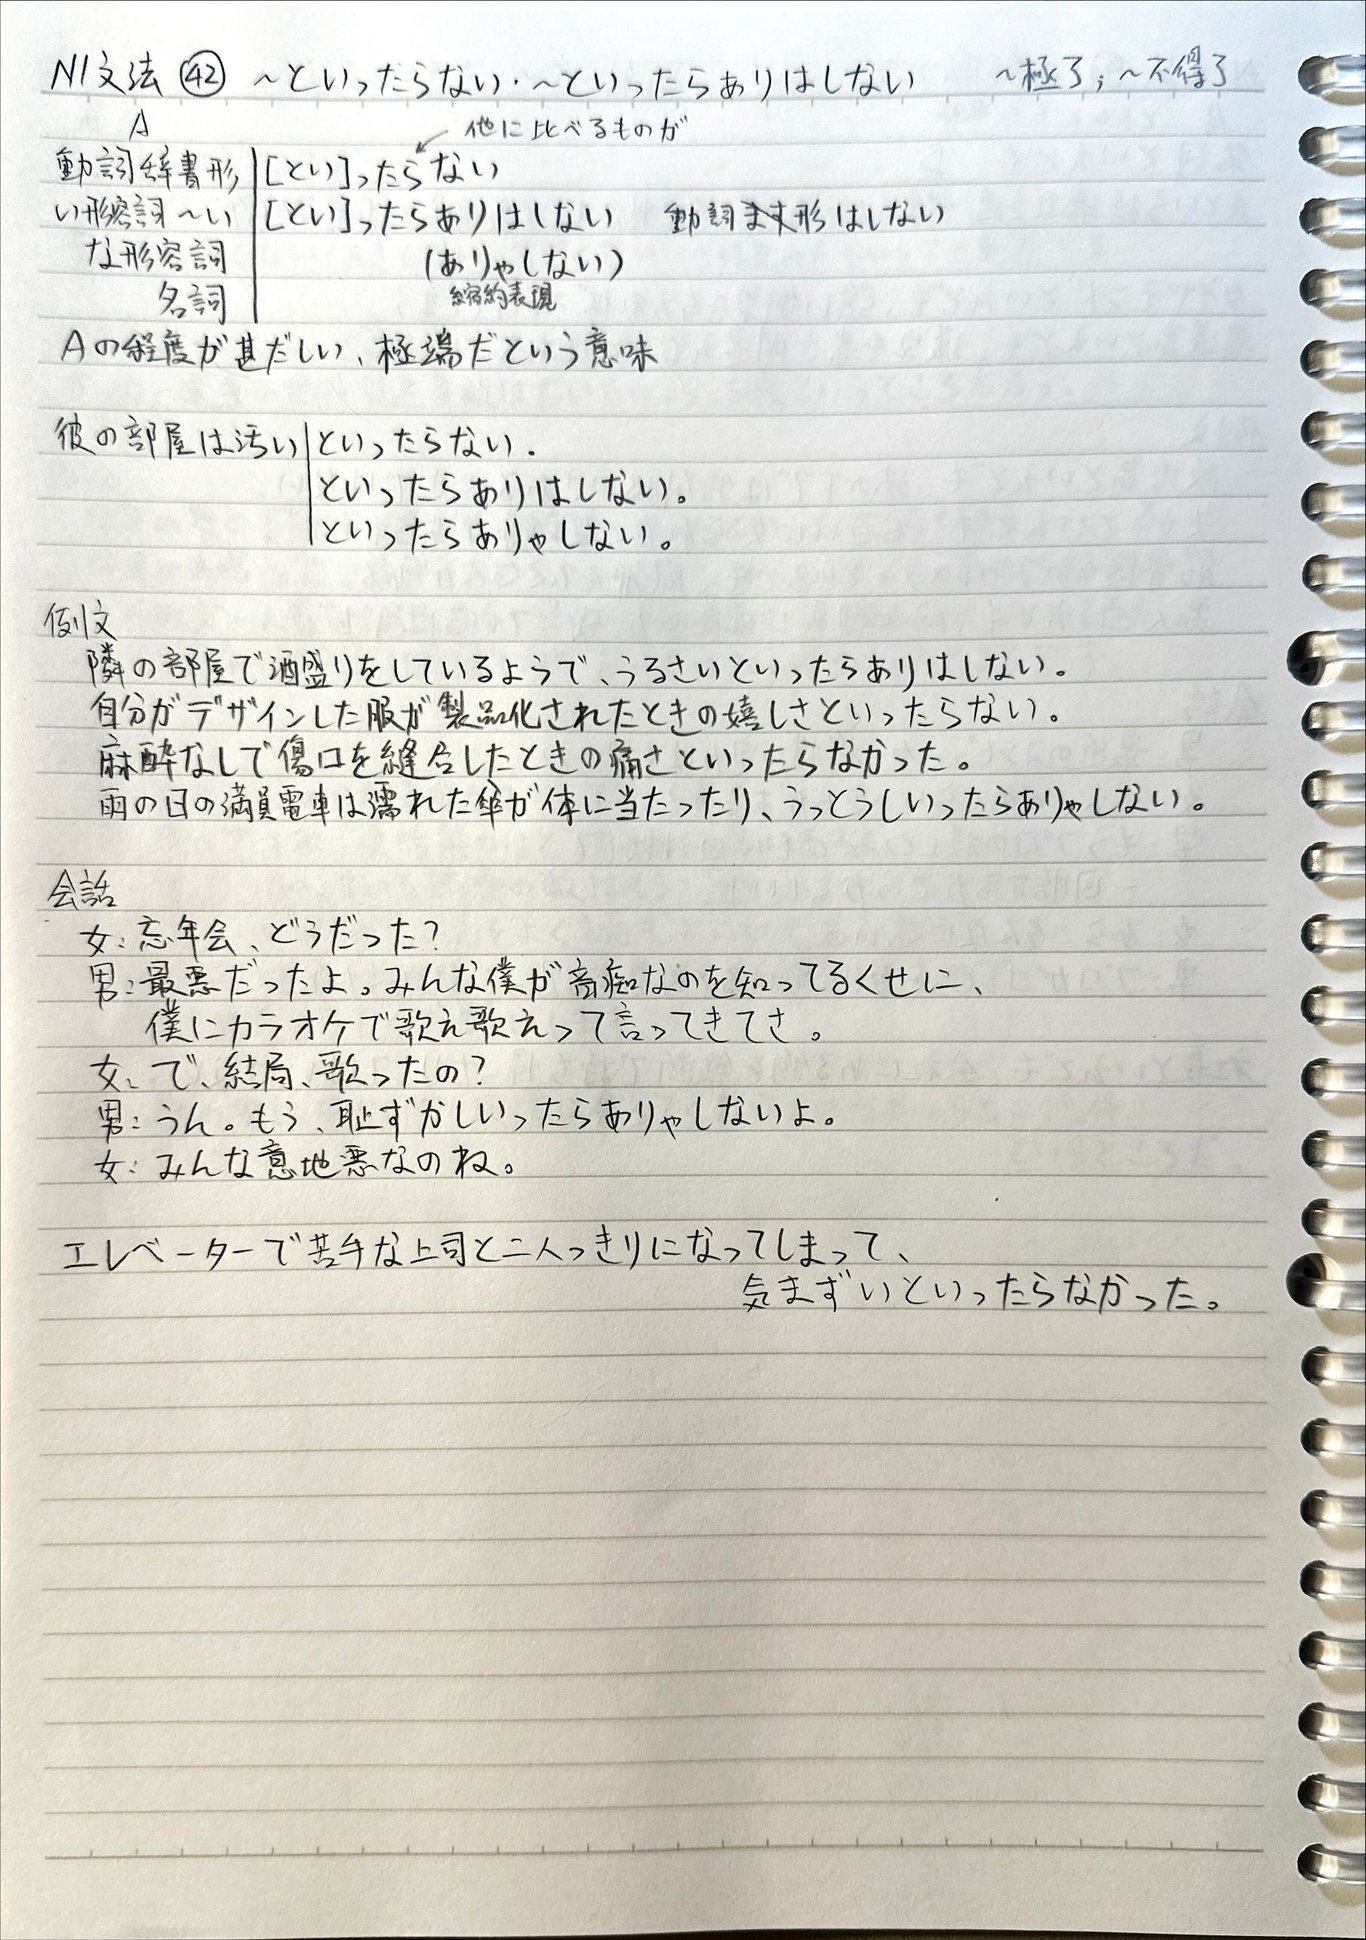 N1文法 ㊷ ～といったらない・～といったらありはしない ～極了；～不得了
A
他に比べるものが
動詞辞書形 [とい]ったらない
い形容詞～い [とい]ったらありはしない 動詞ます形はしない
な形容詞 (ありゃしない)
名詞 縮約表現
Aの程度が甚だしい、極端だという意味
彼の部屋は汚い といったらない.
といったらありはしない。
といったらありゃしない。
例文
隣の部屋で酒盛りをしているようで、うるさいといったらありはしない。
自分がデザインした服が製品化されたときの嬉しさといったらない。
麻酔なしで傷口を縫合したときの痛さといったらなかった。
雨の日の満員電車は濡れた傘が体に当たったり、うっとうしいったらありゃしない。
会話
女：忘年会、どうだった？
男：最悪だったよ。みんな僕が音痴なのを知ってるくせに、
僕にカラオケで歌え歌えって言ってきてさ。
女：で、結局、歌ったの？
男：うん。もう、恥ずかしいったらありゃしないよ。
女：みんな意地悪なのね。
エレベーターで苦手な上司と二人っきりになってしまって、
気まずいといったらなかった。